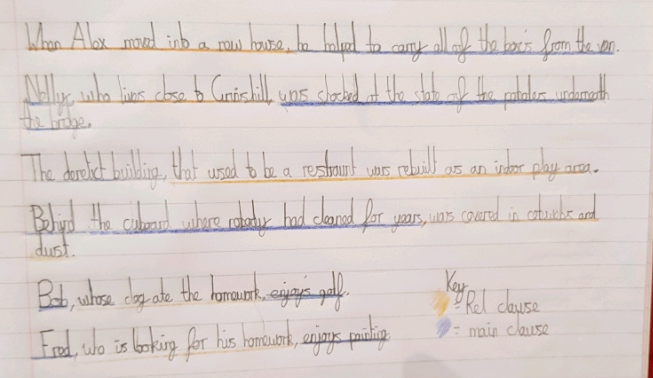 When Alex moved into a new house, he helped to carry all of the box's from the van.
Nelly, who lives close to shocked at the state of the potholes underneath
the bridge.
The derelict building, that used to be a restraunt was rebuilt as an indoor play area.
Behind the cuboard where nobody had cleaned for years, was covered in cobwebs and
dust.
Bob, whose dog ate the homework, enjoy's golf.
Fred, who is looking for his homework, enjoys painting.
Key
= Rel clause
= main clause